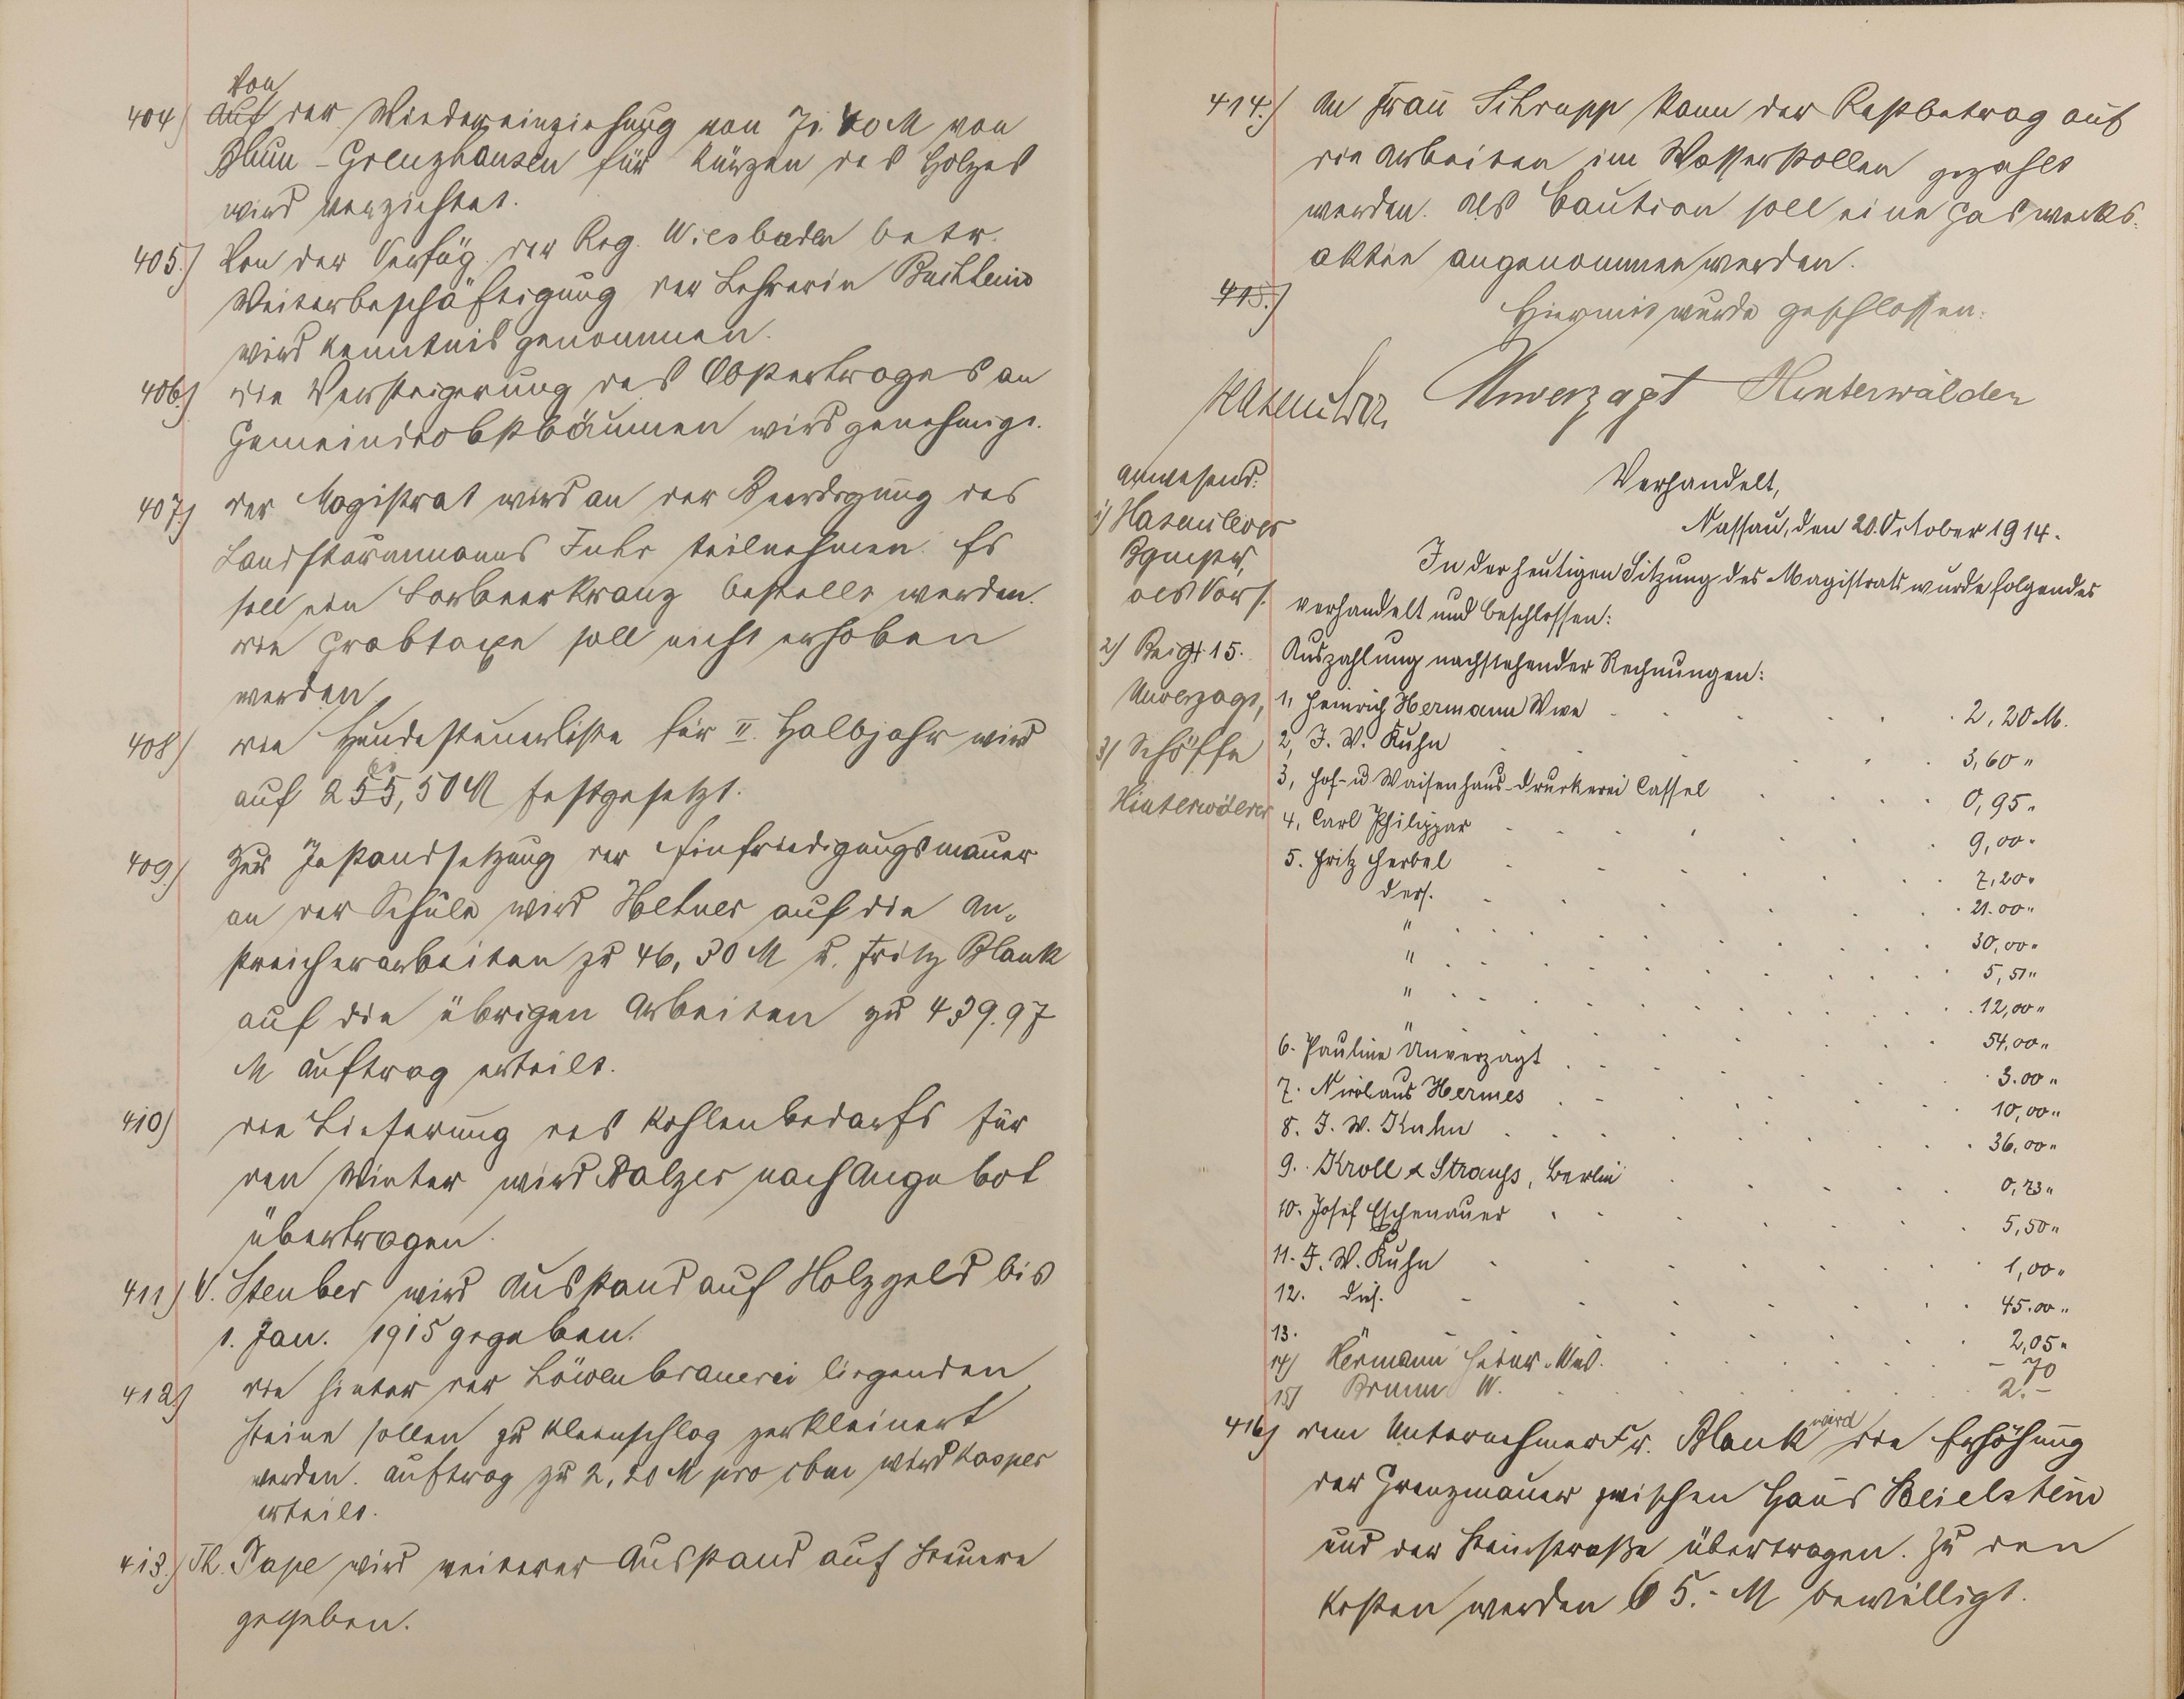 404) Von
auf der Wiedereinziehung von 70 M von
Blum-Grenzhausen für Kürzen des Holzes
wird verzichtet.
405.) Von der Verfüg. der Reg. Wiesbaden betr.
Weiterbeschäftigung der Lehrerin Buchheim
wird Kenntnis genommen.
406.) Die Versteigerung des Obstertrages an
Gemeindeobstbäumen wird genehmigt.
407.) Der Magistrat wird an der Beerdigung des
Landsturmmanns Fuhr teilnehmen. Es
soll ein Lorbeerkranz bestellt werden.
Die Grabtaxe soll nicht erhoben
werden.
408) Die Hundesteuerliste für II. Halbjahr wird
auf 255,50 M festgesetzt.
409.) Zur Instandsetzung der Einfriedigungsmauer
an der Schule wird Heltner auf die An-
streicherarbeiten zu 46,30 M u. Fritz Blank
auf die übrigen Arbeiten zu 439.97
M Auftrag erteilt.
410) Die Lieferung des Kohlenbedarfs für
den Winter wird Balzer nach Angebot
übertragen.
411) W. Steuber wird Ausstand auf Holzgeld bis
1. Jan. 1915 gegeben.
412) Die hinter der Löwenbrauerei liegenden
Steine sollen zu Kleinschlag zerkleinert
werden. Auftrag zu 2,20 M pro cbm wird Kasper
erteilt.
413.) Th. Pape wird weiterer Ausstand auf Steuern
gegeben.
414.) An Frau Schrupp kann der Restbetrag auf
die Arbeiten im Wasserstollen gezahlt
werden. Als Caution soll eine Gaswerks-
aktie angenommen werden.
415.)
Hiermit wurde geschlossen.
Hasenclever Unverzagt Hinterwälder
Anwesend:
1) Hasenclever
Bgmstr,
als Vors.
2) Beigt
Unverzagt,
3) Schöffe
Hinterwälder
Verhandelt,
Nassau, den 20. October 1914.
In der heutigen Sitzung des Magistrats wurde folgendes
verhandelt und beschlossen:
415. Auszahlung nachstehender Rechnungen:
1, Heinrich Hermann Wwe 2,20 M.
2, J. W. Kuhn 3,60 "
3, Hof- u Waisenhaus-Druckerei Cassel 0,95 "
4, Carl Philippar 9,00 "
5. Fritz Herbel 7,20 "
ders. 21.00 "
" 30,00 "
" 5,50 "
" 12,00 "
" 54,00 "
6. Pauline Unverzagt 3.00 "
7. Nicolaus Hermes 10,00 "
8. J. W. Kuhn 36,00 "
9. Kroll & Strauss, Berlin 0,73 "
10. Josef Eschenauer 5,50 "
11. J. W. Kuhn 1,00 "
12. dies. 45.00 "
13. " 2,05 "
14) Hermann Heinr. Ww. – 70
15) Brumm W. 2.–
416) Dem Unternehmer Fr. Blank wird die Erhöhung
der Grenzmauer zwischen Haus Beielstein
und der Steinstraße übertragen. Zu den
Kosten werden 65.- M bewilligt.